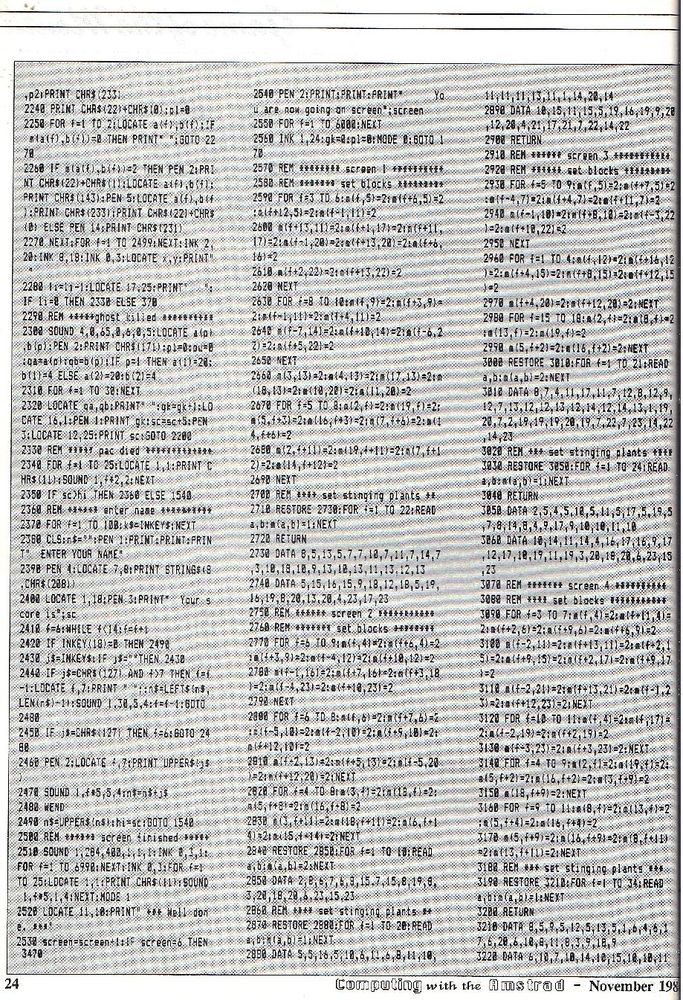 ,p2:PRINT CHR$(233)
2240 PRINT CHR$(22)+CHR$(0):pl=0
2250 FOR f=1 TO 2:LOCATE a(f),b(f):IF
m(a(f),b(f))=0 THEN PRINT" ":GOTO 22
70
2260 IF m(a(f),b(f))=2 THEN PEN 2:PRI
NT CHR$(22)+CHR$(1):LOCATE a(f),b(f):
PRINT CHR$(143):PEN 5:LOCATE a(f),b(f
):PRINT CHR$(233):PRINT CHR$(22)+CHR$
(0) ELSE PEN 14:PRINT CHR$(231)
2270 NEXT:FOR f=1 TO 2499:NEXT:INK 2,
20:INK 8,18:INK 0,3:LOCATE x,y:PRINT"
"
2280 li=li-1:LOCATE 17,25:PRINT" ":
IF li=0 THEN 2330 ELSE 370
2290 REM *****ghost killed **********
2300 SOUND 4,0,65,0,6,0,5:LOCATE a(p)
,b(p):PEN 2:PRINT CHR$(171):pl=0:pu=0
:qa=a(p):qb=b(p):IF p=1 THEN a(1)=20:
b(1)=4 ELSE a(2)=20:b(2)=4
2310 FOR f=1 TO 30:NEXT
2320 LOCATE qa,qb:PRINT" ":gk=gk+1:LO
CATE 16,1:PEN 1:PRINT gk:sc=sc+5:PEN
3:LOCATE 12,25:PRINT sc:GOTO 2200
2330 REM ***** pac died *************
2340 FOR f=1 TO 25:LOCATE 1,1:PRINT C
HR$(11):SOUND 1,f*2,2:NEXT
2350 IF sc>hi THEN 2360 ELSE 1540
2360 REM ****** enter name **********
2370 FOR f=1 TO 100:k$=INKEY$:NEXT
2380 CLS:n$="":PEN 1:PRINT:PRINT:PRIN
T" ENTER YOUR NAME"
2390 PEN 4:LOCATE 7,8:PRINT STRING$(8
,CHR$(208))
2400 LOCATE 1,18:PEN 3:PRINT" Your s
core is";sc
2410 f=6:WHILE f<14:f=f+1
2420 IF INKEY(18)=0 THEN 2490
2430 j$=INKEY$:IF j$=""THEN 2430
2440 IF j$=CHR$(127) AND f>7 THEN f=f
-1:LOCATE f,7:PRINT " ":n$=LEFT$(n$,
LEN(n$)-1):SOUND 1,30,5,4:f=f-1:GOTO
2480
2450 IF j$=CHR$(127) THEN f=6:GOTO 24
80
2460 PEN 2:LOCATE f,7:PRINT UPPER$(j$
)
2470 SOUND 1,f*5,5,4:n$=n$+j$
2480 WEND
2490 n$=UPPER$(n$):hi=sc:GOTO 1540
2500 REM ****** screen finished *****
2510 SOUND 1,284,400,1,1,1:INK 0,3,1:
FOR f=1 TO 6990:NEXT:INK 0,3:FOR f=1
TO 25:LOCATE 1,1:PRINT CHR$(11):SOUND
1,f*5,1,4:NEXT:MODE 1
2520 LOCATE 11,10:PRINT" *** Well don
e, ***"
2530 screen=screen+1:IF screen=6 THEN
3470
2540 PEN 2:PRINT:PRINT:PRINT" Yo
u are now going on screen";screen
2550 FOR f=1 TO 6000:NEXT
2560 INK 1,24:gk=0:pl=0:MODE 0:GOTO 1
70
2570 REM ******** screen 1 **********
2580 REM ******** set blocks ********
2590 FOR f=3 TO 6:m(f,5)=2:m(f+6,5)=2
:m(f+12,5)=2:m(f-1,11)=2
2600 m(f+13,11)=2:m(f+1,17)=2:m(f+11,
17)=2:m(f-1,20)=2:m(f+13,20)=2:m(f+6,
16)=2
2610 m(f+2,22)=2:m(f+13,22)=2
2620 NEXT
2630 FOR f=8 TO 10:m(f,9)=2:m(f+3,9)=
2:m(f-1,11)=2:m(f+4,11)=2
2640 m(f-7,14)=2:m(f+10,14)=2:m(f-6,2
2)=2:m(f+5,22)=2
2650 NEXT
2660 m(3,13)=2:m(4,13)=2:m(17,13)=2:m
(18,13)=2:m(10,20)=2:m(11,20)=2
2670 FOR f=5 TO 8:m(2,f)=2:m(19,f)=2:
m(5,f+3)=2:m(16,f+3)=2:m(7,f+6)=2:m(1
4,f+6)=2
2680 m(2,f+11)=2:m(19,f+11)=2:m(7,f+1
2)=2:m(14,f+12)=2
2690 NEXT
2700 REM **** set stinging plants **
2710 RESTORE 2730:FOR f=1 TO 22:READ
a,b:m(a,b)=1:NEXT
2720 RETURN
2730 DATA 8,5,13,5,7,7,10,7,11,7,14,7
,3,10,18,10,9,13,10,13,11,13,12,13
2740 DATA 5,15,16,15,9,18,12,18,5,19,
16,19,8,20,13,20,4,23,17,23
2750 REM ****** screen 2 ************
2760 REM ******* set blocks *********
2770 FOR f=6 TO 9:m(f,4)=2:m(f+6,4)=2
:m(f+3,9)=2:m(f-4,12)=2:m(f+10,12)=2
2780 m(f-1,16)=2:m(f+7,16)=2:m(f+3,18
)=2:m(f-4,23)=2:m(f+10,23)=2
2790 NEXT
2800 FOR f=6 TO 8:m(f,6)=2:m(f+7,6)=2
:m(f-5,10)=2:m(f-2,10)=2:m(f+9,10)=2:
m(f+12,10)=2
2810 m(f+2,13)=2:m(f+5,13)=2:m(f-5,20
)=2:m(f+12,20)=2:NEXT
2820 FOR f=4 TO 8:m(3,f)=2:m(18,f)=2:
m(5,f+8)=2:m(16,f+8)=2
2830 m(3,f+11)=2:m(18,f+11)=2:m(6,f+1
4)=2:m(15,f+14)=2:NEXT
2840 RESTORE 2850:FOR f=1 TO 10:READ
a,b:m(a,b)=2:NEXT
2850 DATA 2,8,6,7,6,8,15,7,15,8,19,8,
3,20,18,20,6,23,15,23
2860 REM **** set stinging plants **
2870 RESTORE 2880:FOR f=1 TO 20:READ
a,b:m(a,b)=1:NEXT
2880 DATA 5,5,16,5,10,6,11,6,8,11,10,
11,11,11,13,11,1,14,20,14
2890 DATA 10,15,11,15,5,19,16,19,9,20
,12,20,4,21,17,21,7,22,14,22
2900 RETURN
2910 REM ****** screen 3 ***********
2920 REM ****** set blocks *********
2930 FOR f=5 TO 9:m(f,5)=2:m(f+7,5)=2
:m(f-4,7)=2:m(f+4,7)=2:m(f+11,7)=2
2940 m(f-1,10)=2:m(f+8,10)=2:m(f-3,22
)=2:m(f+10,22)=2
2950 NEXT
2960 FOR f=1 TO 4:m(f,12)=2:m(f+16,12
)=2:m(f+4,15)=2:m(f+8,15)=2:m(f+12,15
)=2
2970 m(f+4,20)=2:m(f+12,20)=2:NEXT
2980 FOR f=15 TO 18:m(2,f)=2:m(8,f)=2
:m(13,f)=2:m(19,f)=2
2990 m(5,f+2)=2:m(16,f+2)=2:NEXT
3000 RESTORE 3010:FOR f=1 TO 21:READ
a,b:m(a,b)=2:NEXT
3010 DATA 8,7,4,11,17,11,7,12,8,12,9,
12,7,13,12,12,13,12,14,12,14,13,1,19,
20,7,2,19,19,19,20,19,7,22,7,23,14,22
,14,23
3020 REM *** set stinging plants ****
3030 RESTORE 3050:FOR f=1 TO 24:READ
a,b:m(a,b)=1:NEXT
3040 RETURN
3050 DATA 2,5,4,5,10,5,11,5,17,5,19,5
,7,8,14,8,4,9,17,9,10,10,11,10
3060 DATA 10,14,11,14,4,16,17,16,9,17
,12,17,10,19,11,19,3,20,18,20,6,23,15
,23
3070 REM ******* screen 4 **********
3080 REM **** set blocks ***********
3090 FOR f=3 TO 7:m(f,4)=2:m(f+11,4)=
2:m(f+2,6)=2:m(f+9,6)=2:m(f+6,9)=2
3100 m(f-2,11)=2:m(f+13,11)=2:m(f+2,1
5)=2:m(f+9,15)=2:m(f+2,17)=2:m(f+9,17
)=2
3110 m(f-2,21)=2:m(f+13,21)=2:m(f-1,2
3)=2:m(f+12,23)=2:NEXT
3120 FOR f=10 TO 11:m(f,4)=2:m(f,17)=
2:m(f-2,19)=2:m(f+2,19)=2
3130 m(f-3,23)=2:m(f+3,23)=2:NEXT
3140 FOR f=4 TO 9:m(2,f)=2:m(19,f)=2:
m(5,f+2)=2:m(16,f+2)=2:m(3,f+9)=2
3150 m(18,f+9)=2:NEXT
3160 FOR f=9 TO 11:m(8,f)=2:m(13,f)=2
:m(5,f+4)=2:m(16,f+4)=2
3170 m(5,f+9)=2:m(16,f+9)=2:m(8,f+11)
=2:m(13,f+11)=2:NEXT
3180 REM *** set stinging plants ***
3190 RESTORE 3210:FOR f=1 TO 34:READ
a,b:m(a,b)=1:NEXT
3200 RETURN
3210 DATA 8,5,9,5,12,5,13,5,1,6,4,6,1
7,6,20,6,10,8,11,8,3,9,18,9
3220 DATA 6,10,7,10,14,10,15,10,10,11
24
Computing with the Amstrad – November 198